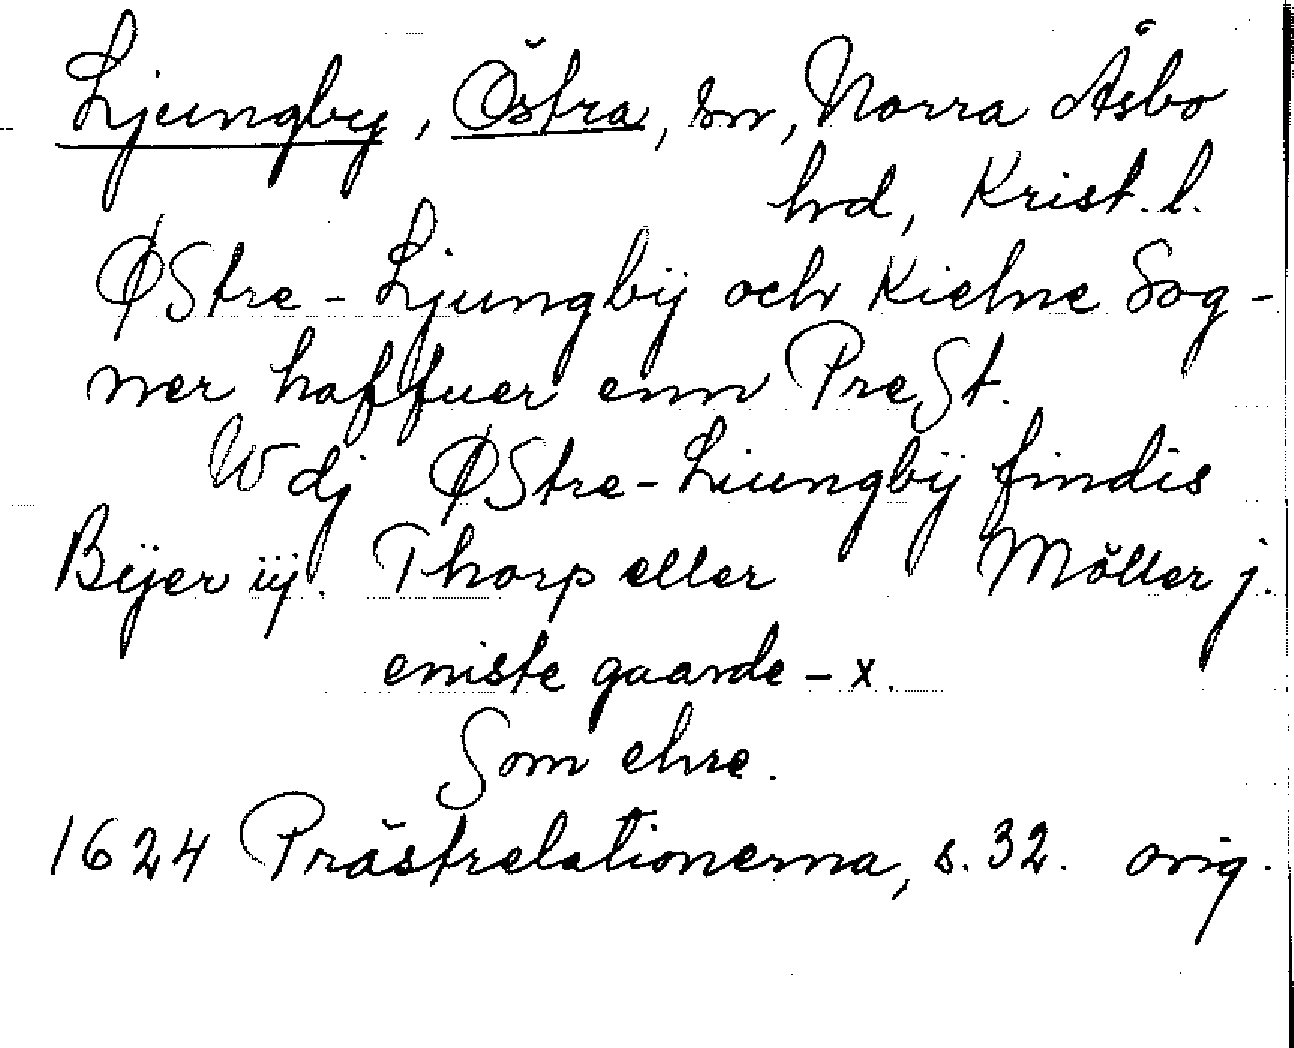 Ljungby, Östra, sn, Norra Åsbo
hd, Krist. l.
Østre - Ljungbÿ och Kielne Sog-
ner haffuer enn Prest.
Wdj Østre - Liungbÿ findis
Bÿer iij. Thorp eller Möller j.
eniste gaarde - x.
Som ehre.
1624 Prästrelationerna, s. 32. orig.